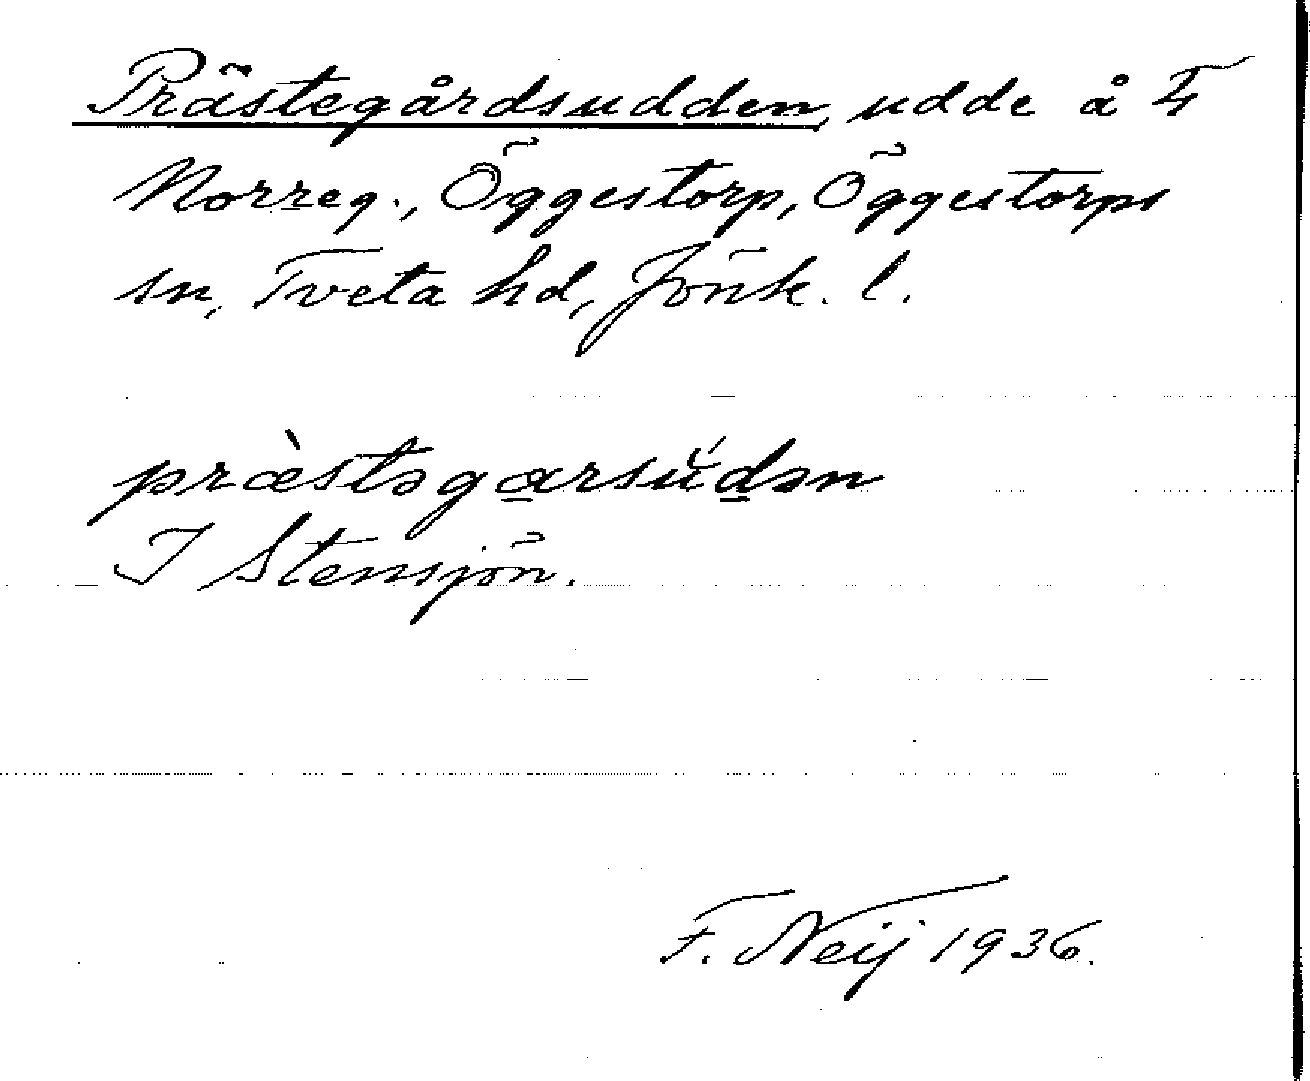 Prästegårdsudden, udde å F
Norreg., Öggestorp, Öggestorps
sn, Tveta hd, Jönk. l.
præ̀stəga̲rsŭ́d̲ən
I Stensjön.
F. Neij 1936.